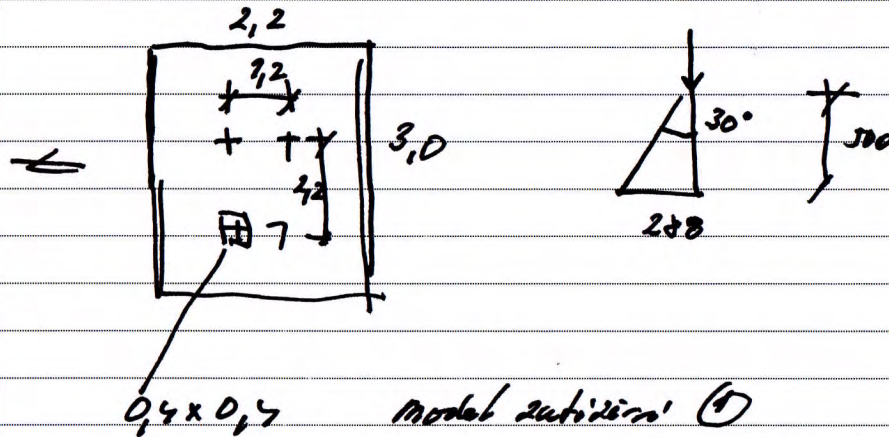 2,2
1,2
3,0
30°
500
288
0,4 x 0,4
model zatížení ①